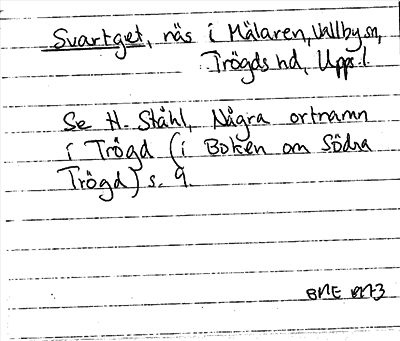 Svartget, näs i Mälaren, Vallby sn,
Trögds hd, Upps. l.
Se H. Ståhl, Några ortnamn
i Trögd (i Boken om Södra
Trögd) s. 9.